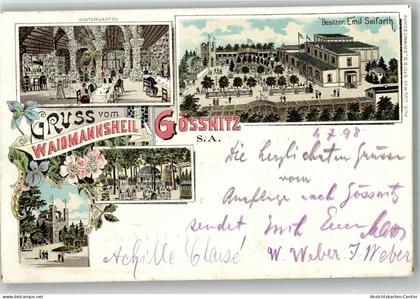 WINTERGARTEN
Besitzer: Emil Seifarth.
Gruss vom
WAIDMANNSHEIL
GÖSSNITZ
S.A.
6.7.98
Die herzlichsten Grüsse
vom
Ausfluge nach Gössnitz
sendet Emil
Achille W. Weber J. Weber
© Ansichtskarten-Center